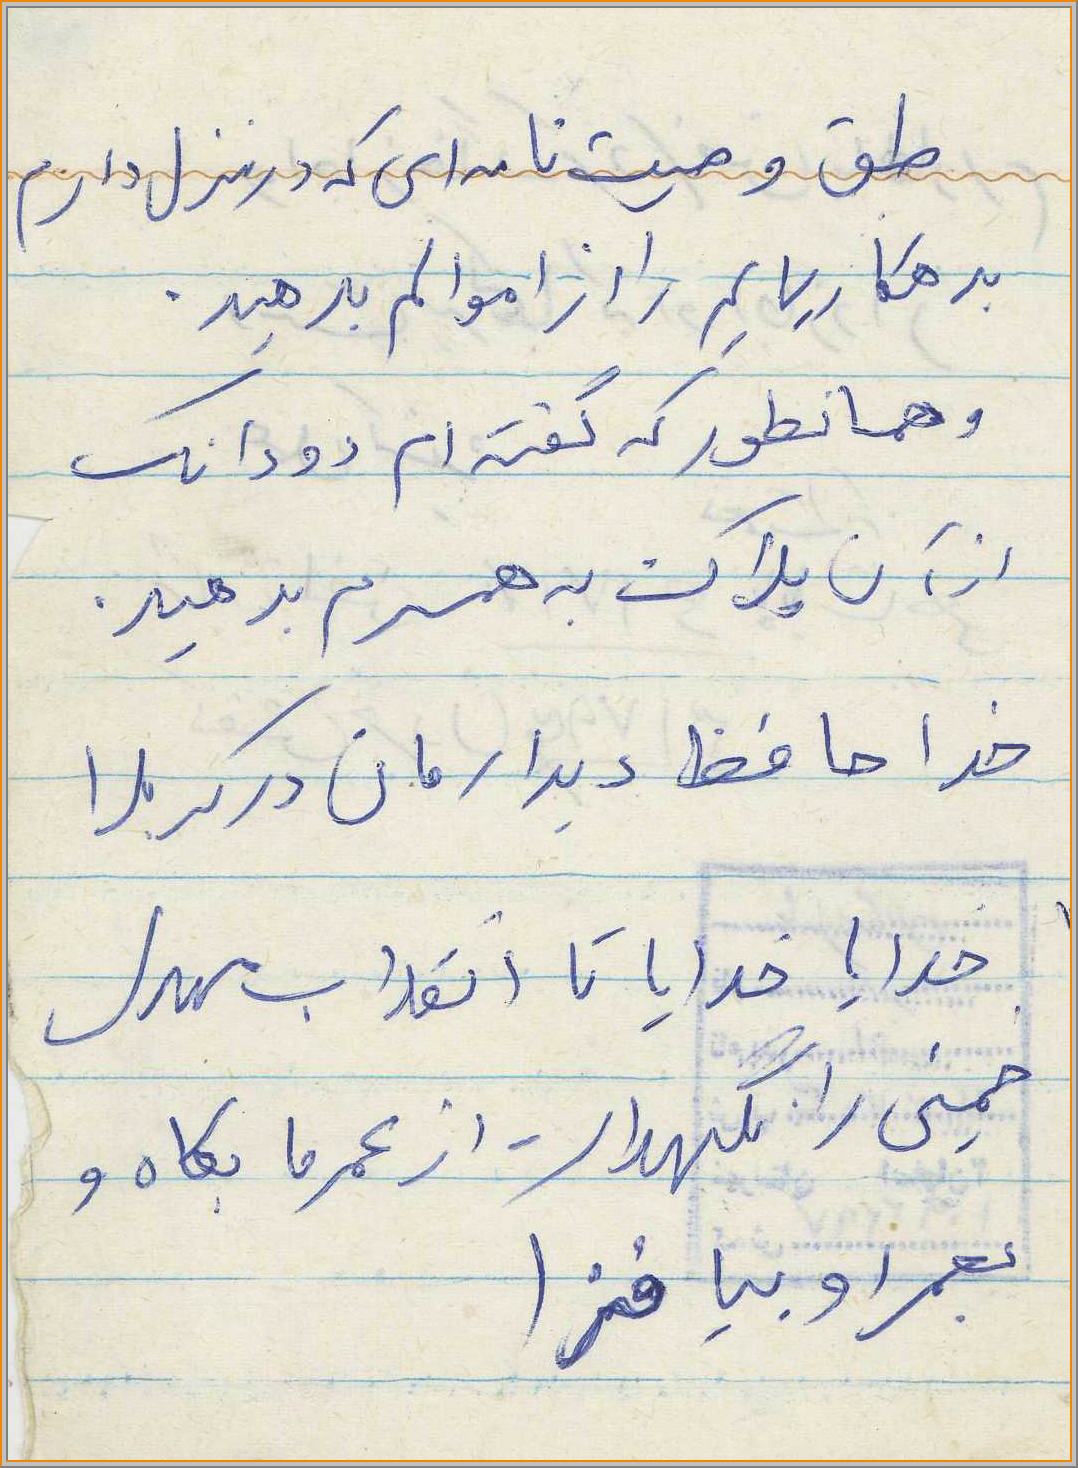 طبق وصیت نامه ای که در منزل دارم
بدهکاریهایم را از اموالم بدهید.
و همانطور که گفته ام دو دانک
از آن پلاکت به همسرم بدهید.
خدا حافظ دیدارمان در کربلا
خدایا خدایا تا انقلاب مهدی
خمینی را نگهدار از عمر ما بکاه و
بعمر او بیا فزا